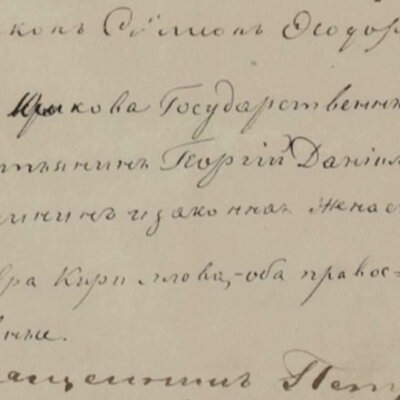 конъ Сѵмеонъ Ѳеодор
Государственны
стьянинъ Георгій Даніил
и законная жена е
Кириллова,-оба правос-
вные.
ященникъ Пет